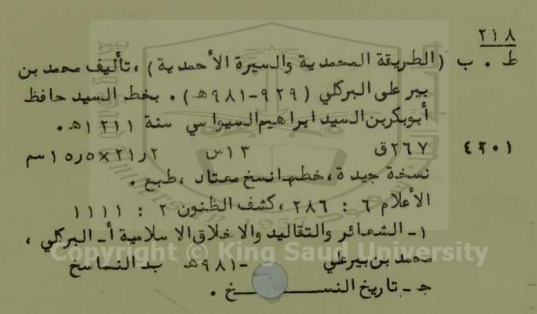 ٢١٨
ط . ب (الطريقة المحمدية والسيرة الأحمدية) ، تأليف محمد بن
بير على البركلي (٩٢٩-٩٨١هـ) . بخط السيد حافظ
أبوبكربن السيد ابراهيم السيواسي سنة ١٢١١هـ.
٤٢٠١ ٢٦٧ق ١٣س ٢ر٢١×٥ر١٥سم
نسخة جيدة ، خطها نسخ معتاد ، طبع .
الأعلام ٦ : ٢٨٦ ، كشف الظنون ٢ : ١١١١
١- الشعائر والتقاليد والاخلاق الاسلامية أ- البركلي ،
محمد بن بيرعلي -٩٨١هـ ب- الناسخ
ج - تاريخ النسخ .
Copyright © King Saud University